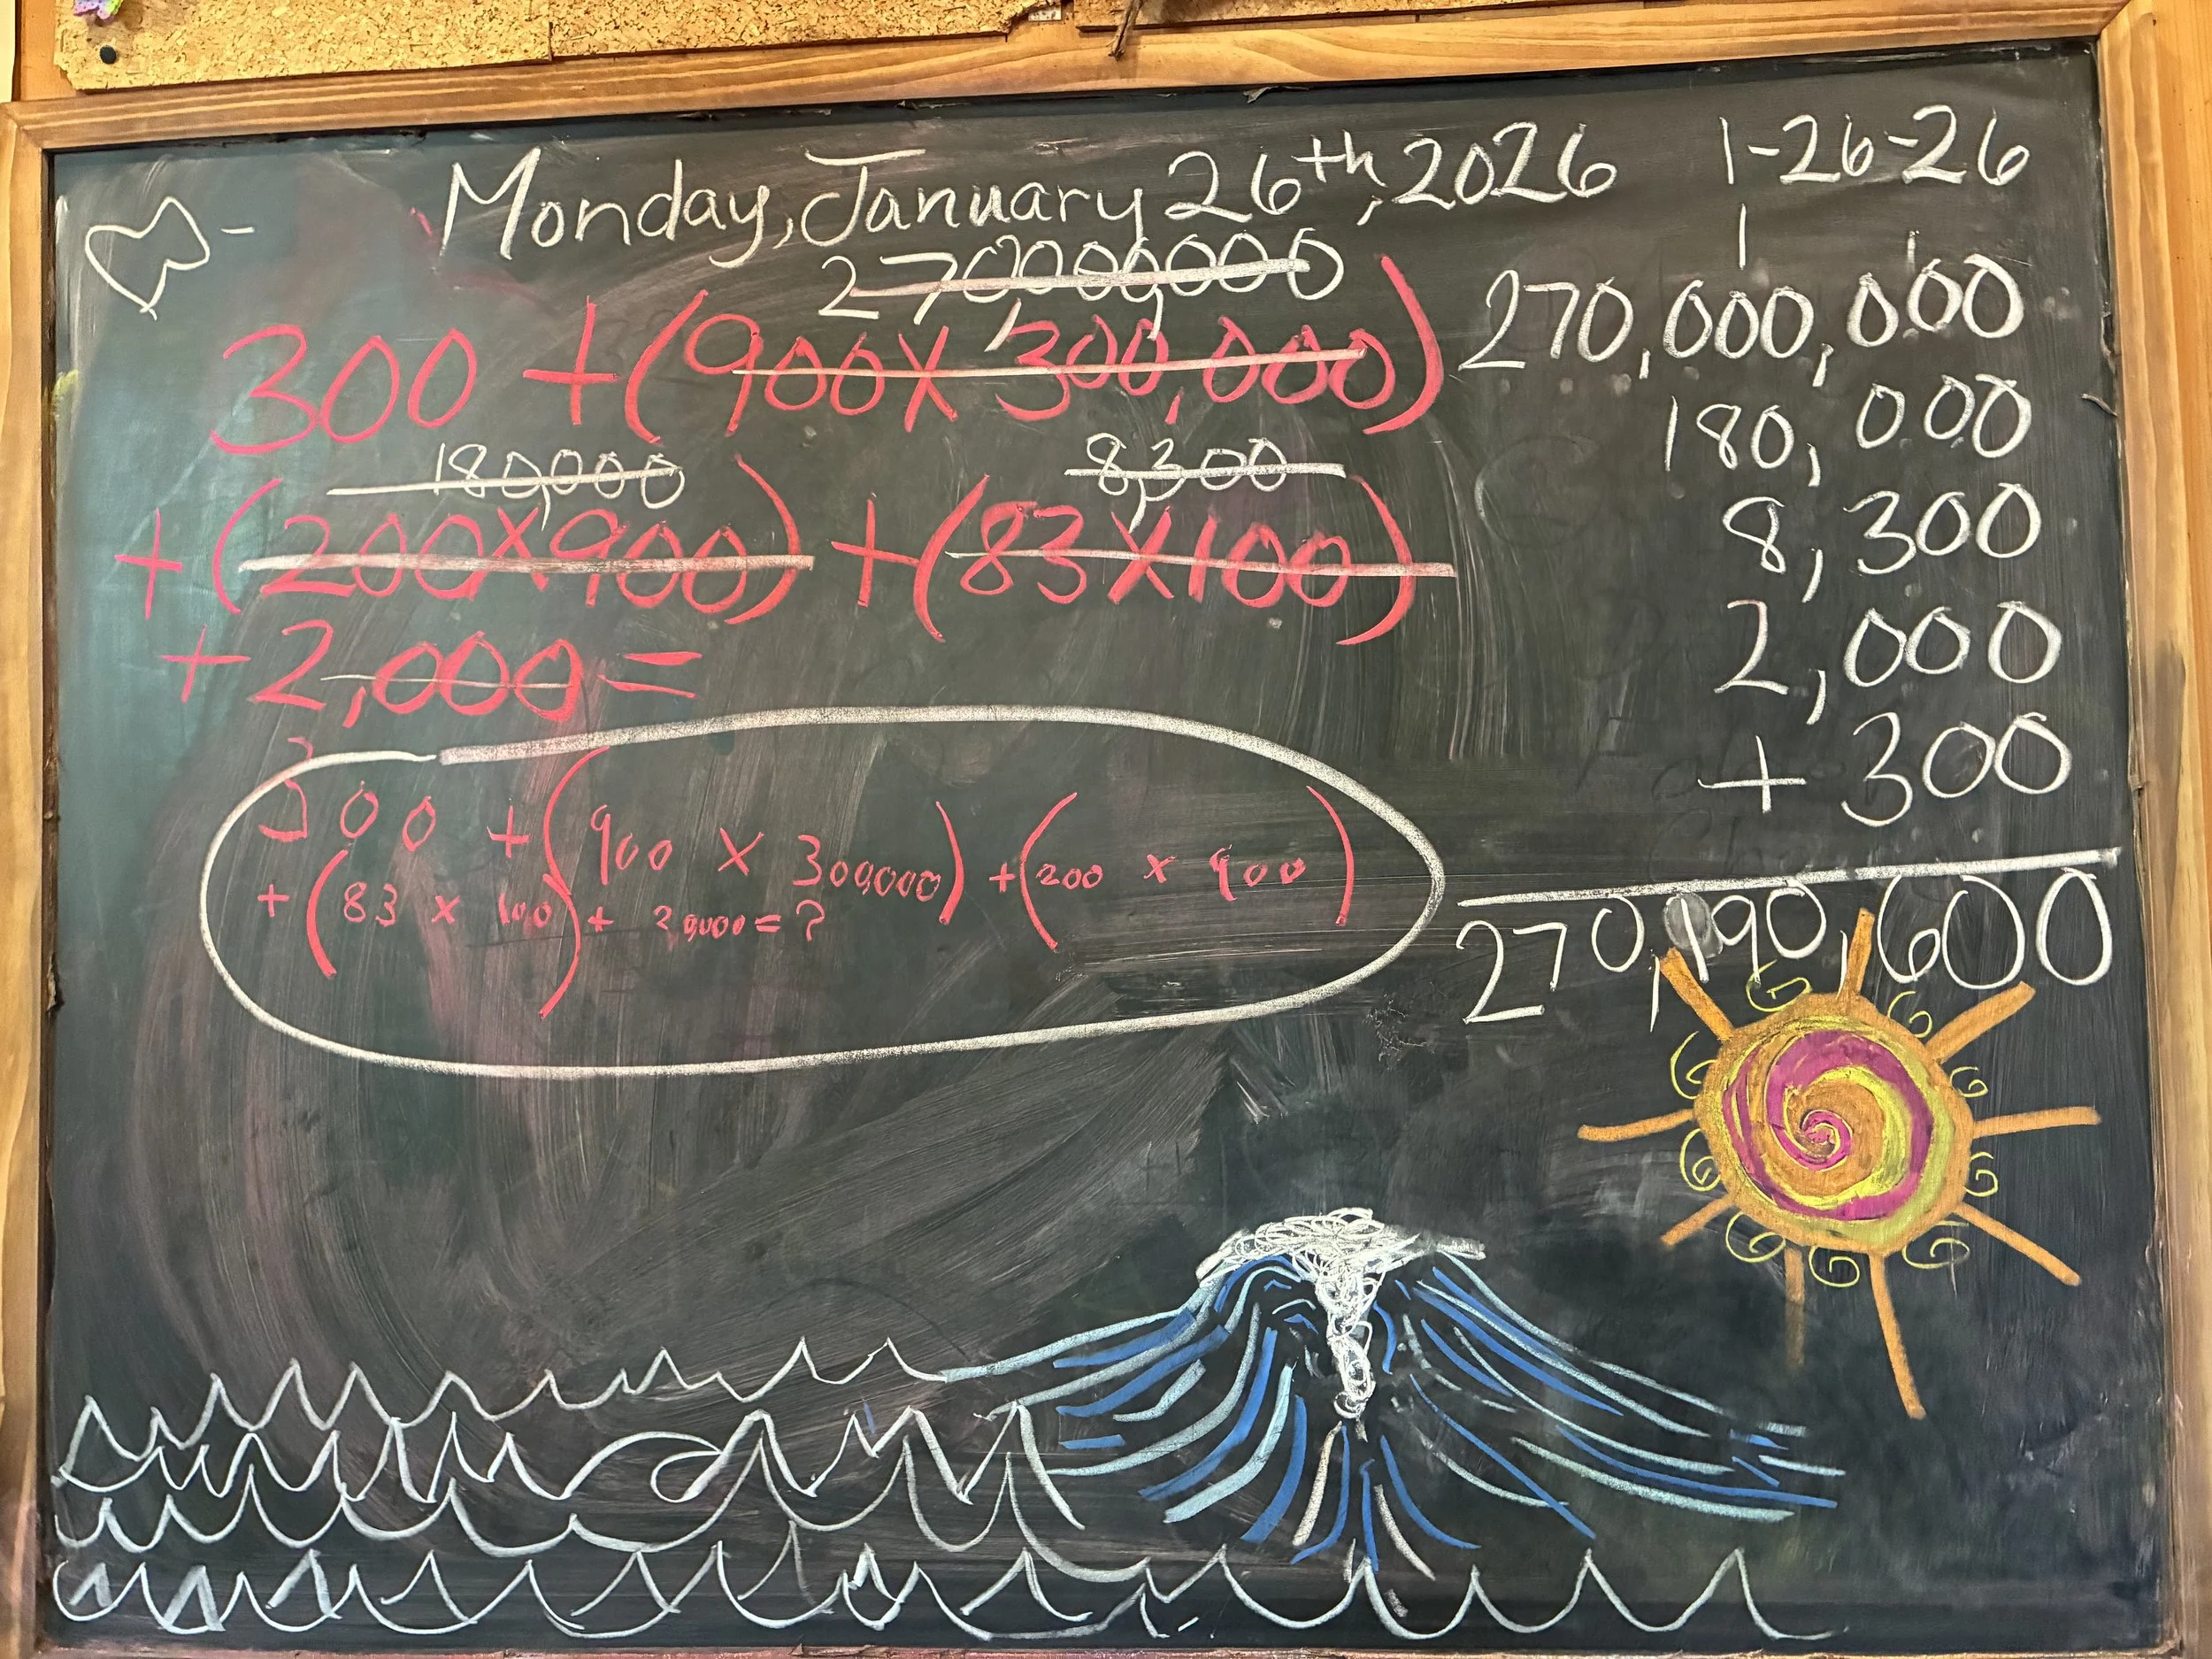 Monday, January 26th, 2026
1-26-26
270,000,000
300 + (900 x 300,000)
180,000 8,300
+ (200 x 900) + (83 x 100)
+ 2,000 =
300 + (900 x 300,000) + (200 x 900)
+ (83 x 100) + 2,000 = ?
1 1
270,000,000
180,000
8,300
2,000
+ 300
270,190,600